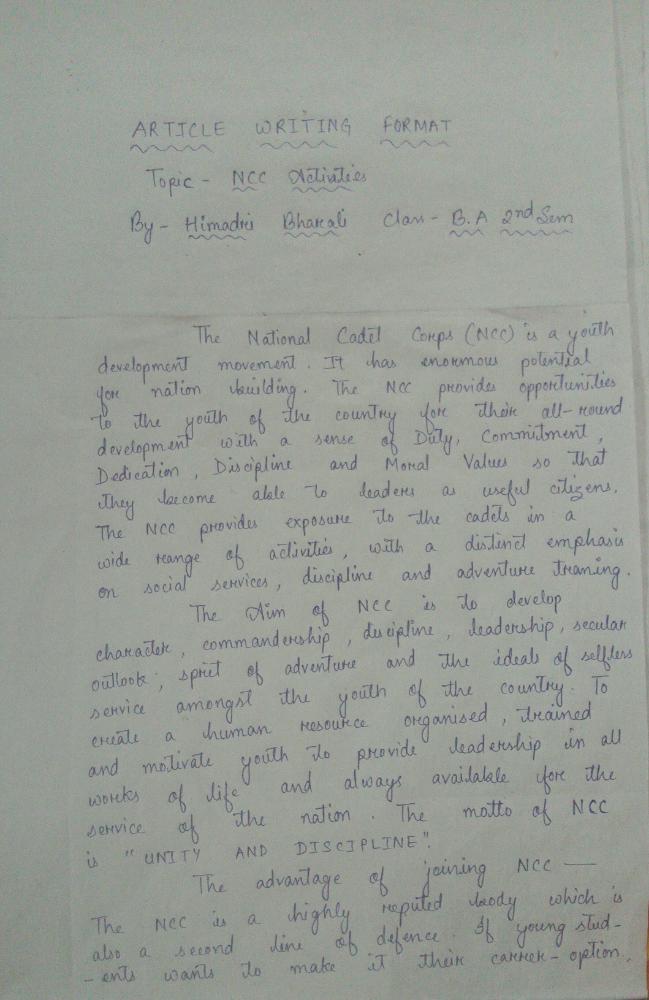 ARTICLE WRITING FORMAT
Topic - NCC Activities
By - Himadri Bharali Class - B.A 2nd Sem
The National Cadet Corps (NCC) is a youth
development movement. It has enormous potential
for nation building. The NCC provides opportunities
to the youth of the country for their all-round
development with a sense of Duty, Commitment,
Dedication, Discipline and Moral Values so that
they become able to leaders as useful citizens.
The NCC provides exposure to the cadets in a
wide range of activities, with a distinct emphasis
on social services, discipline and adventure traning.
The Aim of NCC is to develop
character, commandership, discipline, leadership, secular
outlook, sprit of adventure and the ideals of selfless
service amongst the youth of the country. To
create a human resource organised, trained
and motivate youth to provide leadership in all
works of life and always available for the
service of the nation. The motto of NCC
is "UNITY AND DISCIPLINE".
The advantage of joining NCC —
The NCC is a highly reputed body which is
also a second line of defence. If young stud-
-ents wants to make it their carrer-option,